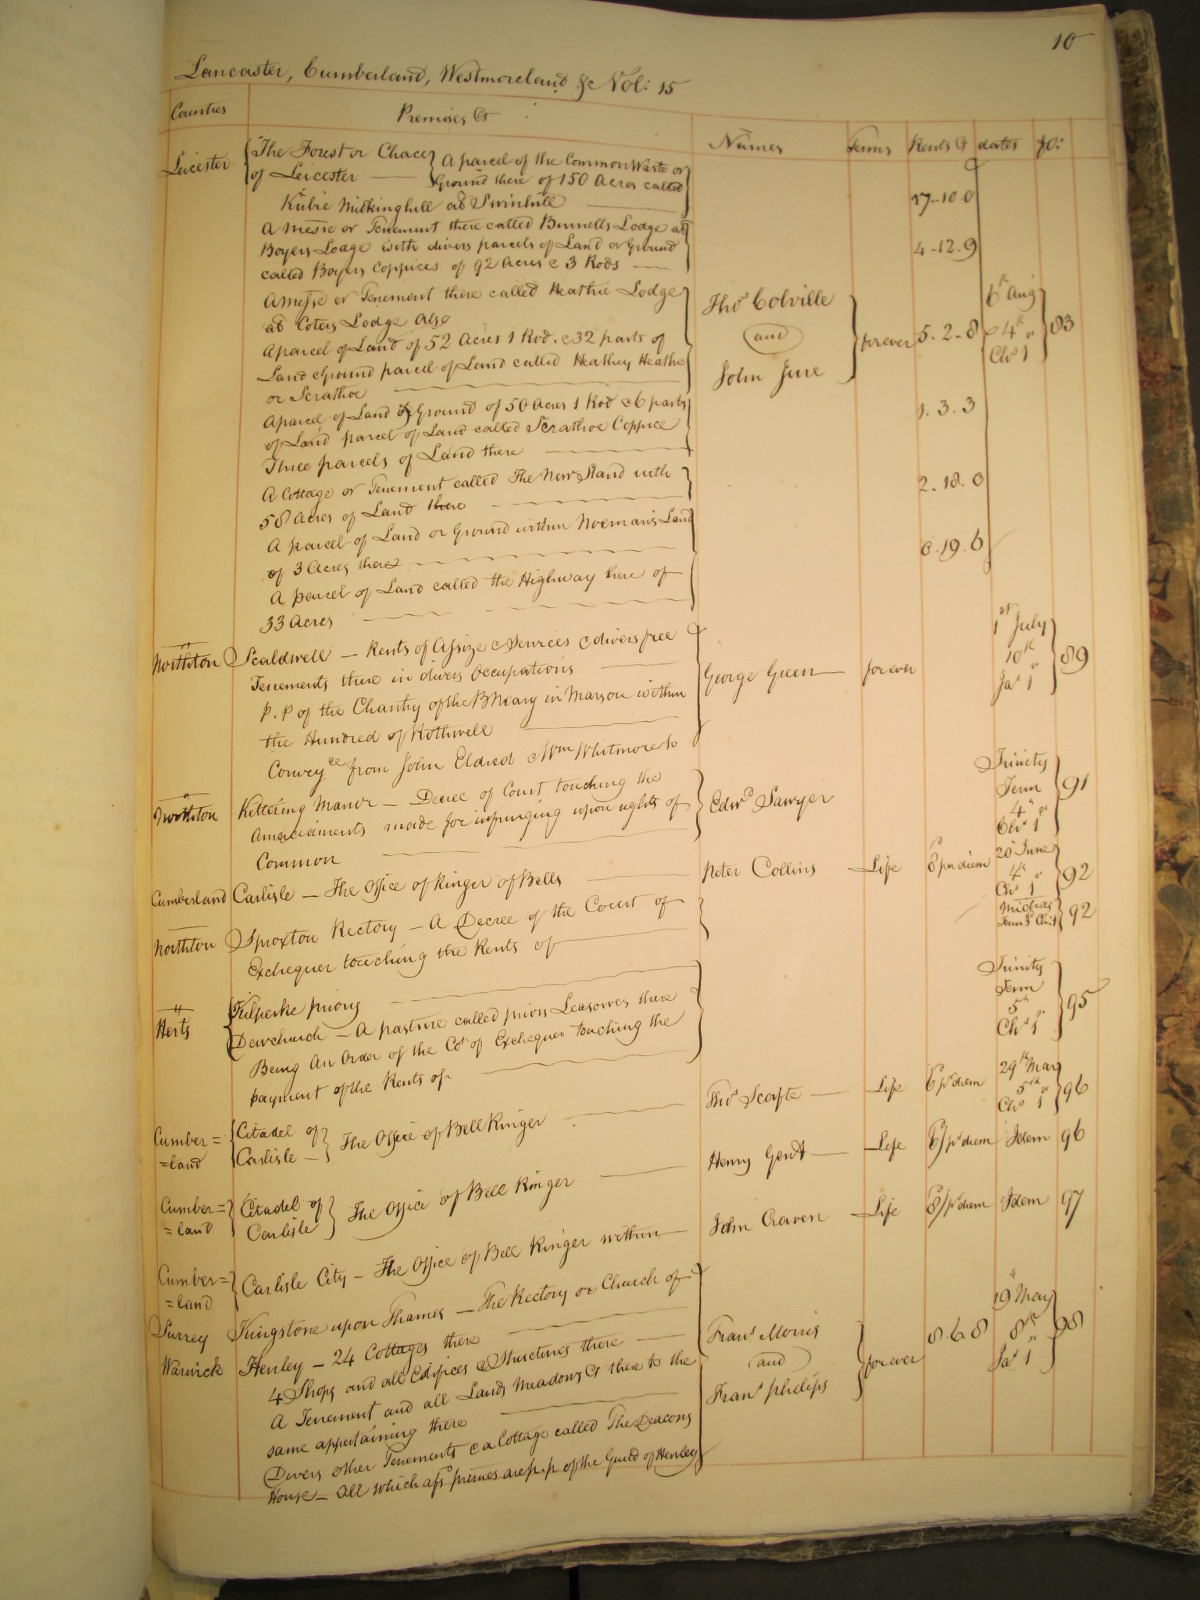 10
Lancaster, Cumberland, Westmoreland &c Vol: 15
Counties Premises &c Names Terms Rents & dates fo:
Leicester The Forest or Chace of Leicester A parcel of the Common Waste or
Ground there of 150 Acres called
Kubie Milkinghill als Swinhill 17-10-0
A Messe or Tenement there called Bunnells Lodge als
Boyers Lodge with divers parcels of Land or Ground 4-12-9
called Boyers Coppices of 92 Acres & 3 Rods
A Messe or Tenement there called Heathie Lodge
als Coters Lodge Also
A parcel of Land of 52 Acres 1 Rod & 32 parts of
Land & Ground parcel of Land called Heathey Heathe
or Scrathoe
Thos Colville and John Jure forever 5-2-8 6th Aug 4th Chs 1 83
A parcel of Land & Ground of 50 Acres 1 Rod & 6 parts 1.3.3
of Land parcel of Land called Scrathoe Coppice
Three parcels of Land there
A Cottage or Tenement called The New Stand with 2.18.0
58 Acres of Land there
A parcel of Land or Ground within Noemans Land 0.19.6
of 3 Acres there
A parcel of Land called the Highway here of
33 Acres
Northton Scaldwell — Rents of Assize & Services & divers free
Tenements there in divers Occupations
p.p of the Chantry of the B Mary in Marson within
the Hundred of Rothwell
Conveyce from John Eldred & Wm Whitmore to
George Green forever 1st July 10th Jas 1st 89
Northton Kettering Manor — Decree of Court touching the
Amerciaments made for infringing upon rights of
Common
Edwd Sawyer Trinity Term 4th Chs 1st 91
Cumberland Carlisle — The Office of Ringer of Bells Peter Collins Life 8d per diem 20 June 4th Chs 1 92
Northton Sproxton Rectory — A Decree of the Court of
Exchequer touching the Rents of Michas Term 5 Chs 1 92
Herts Kilperke Priory
Dewchurch — A pasture called priors Leasowes there
Being An Order of the Cot of Exchequer touching the
payment of the Rents of Trinity Term 5th Chs 1st 95
Cumber=
=land Citadel of Carlisle The Office of Bell Ringer Thos Scafte Life 6 pr diem 29th May 5th Chs 1st 96
Cumber=
=land Citadel of Carlisle The Office of Bell Ringer Henry Gent Life 6/pr diem Idem 96
Cumber=
=land Carlisle City — The Office of Bell Ringer within John Craven Life 8/pr diem Idem 97
Surrey Kingstone upon Thames — The Rectory or Church of
Warwick Henley — 24 Cottages there
4 Shops and all Edifices & Structures there
A Tenement and all Lands Meadows &c there to the
same appertaining there
Divers other Tenements & a Cottage called The Deacons
House — All which afsd premes are p.p of the Guild of Henley
Frans Morris and Frans Phelips forever 8.6.8 19th May 8th Jas 1 98